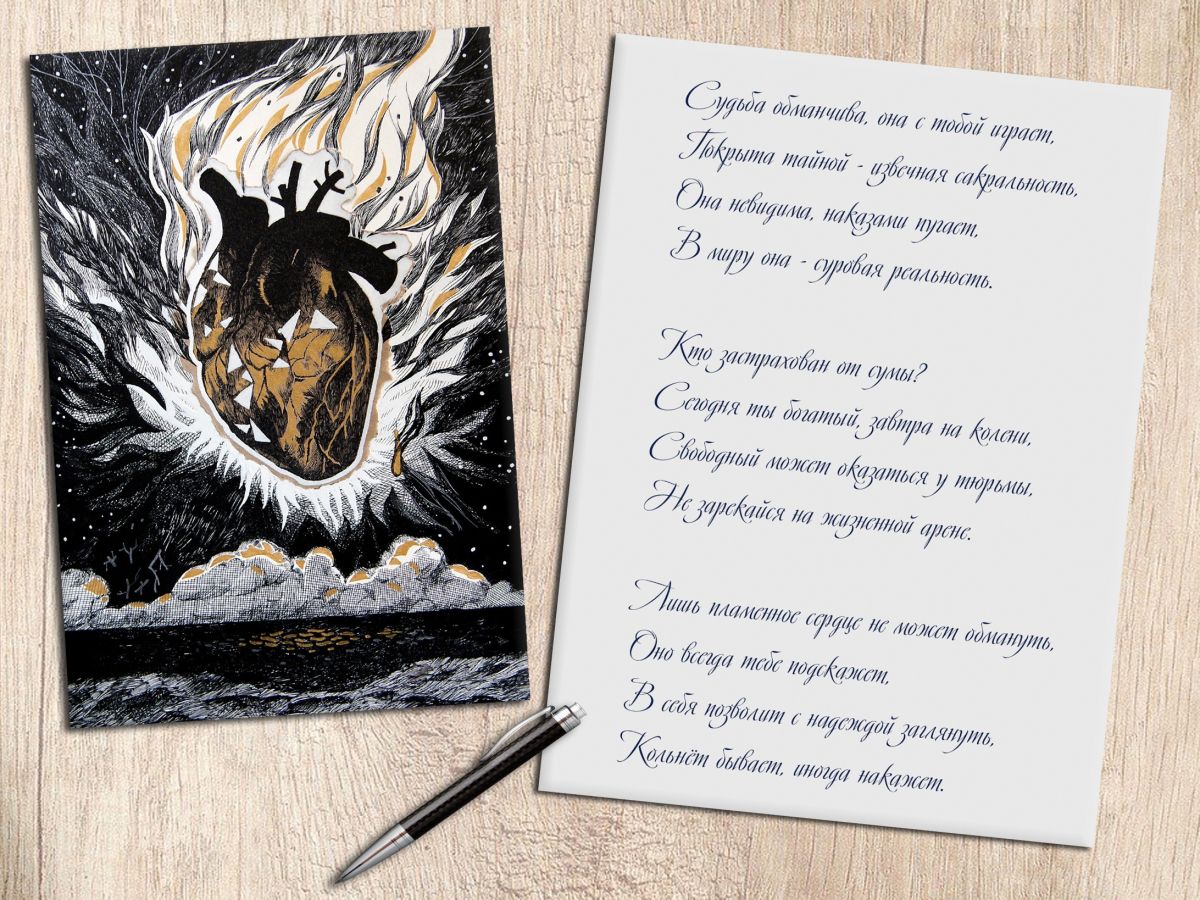 Судьба обманчива, она с тобой играет,
Покрыта тайной - извечная сакральность,
Она невидима, наказами пугает,
В миру она - суровая реальность.
Кто застрахован от сумы?
Сегодня ты богатый, завтра на колени,
Свободный может оказаться у тюрьмы,
Не зарекайся на жизненной арене.
Лишь пламенное сердце не может обмануть,
Оно всегда тебе подскажет,
В себя позволит с надеждой заглянуть,
Кольнёт бывает, иногда накажет.